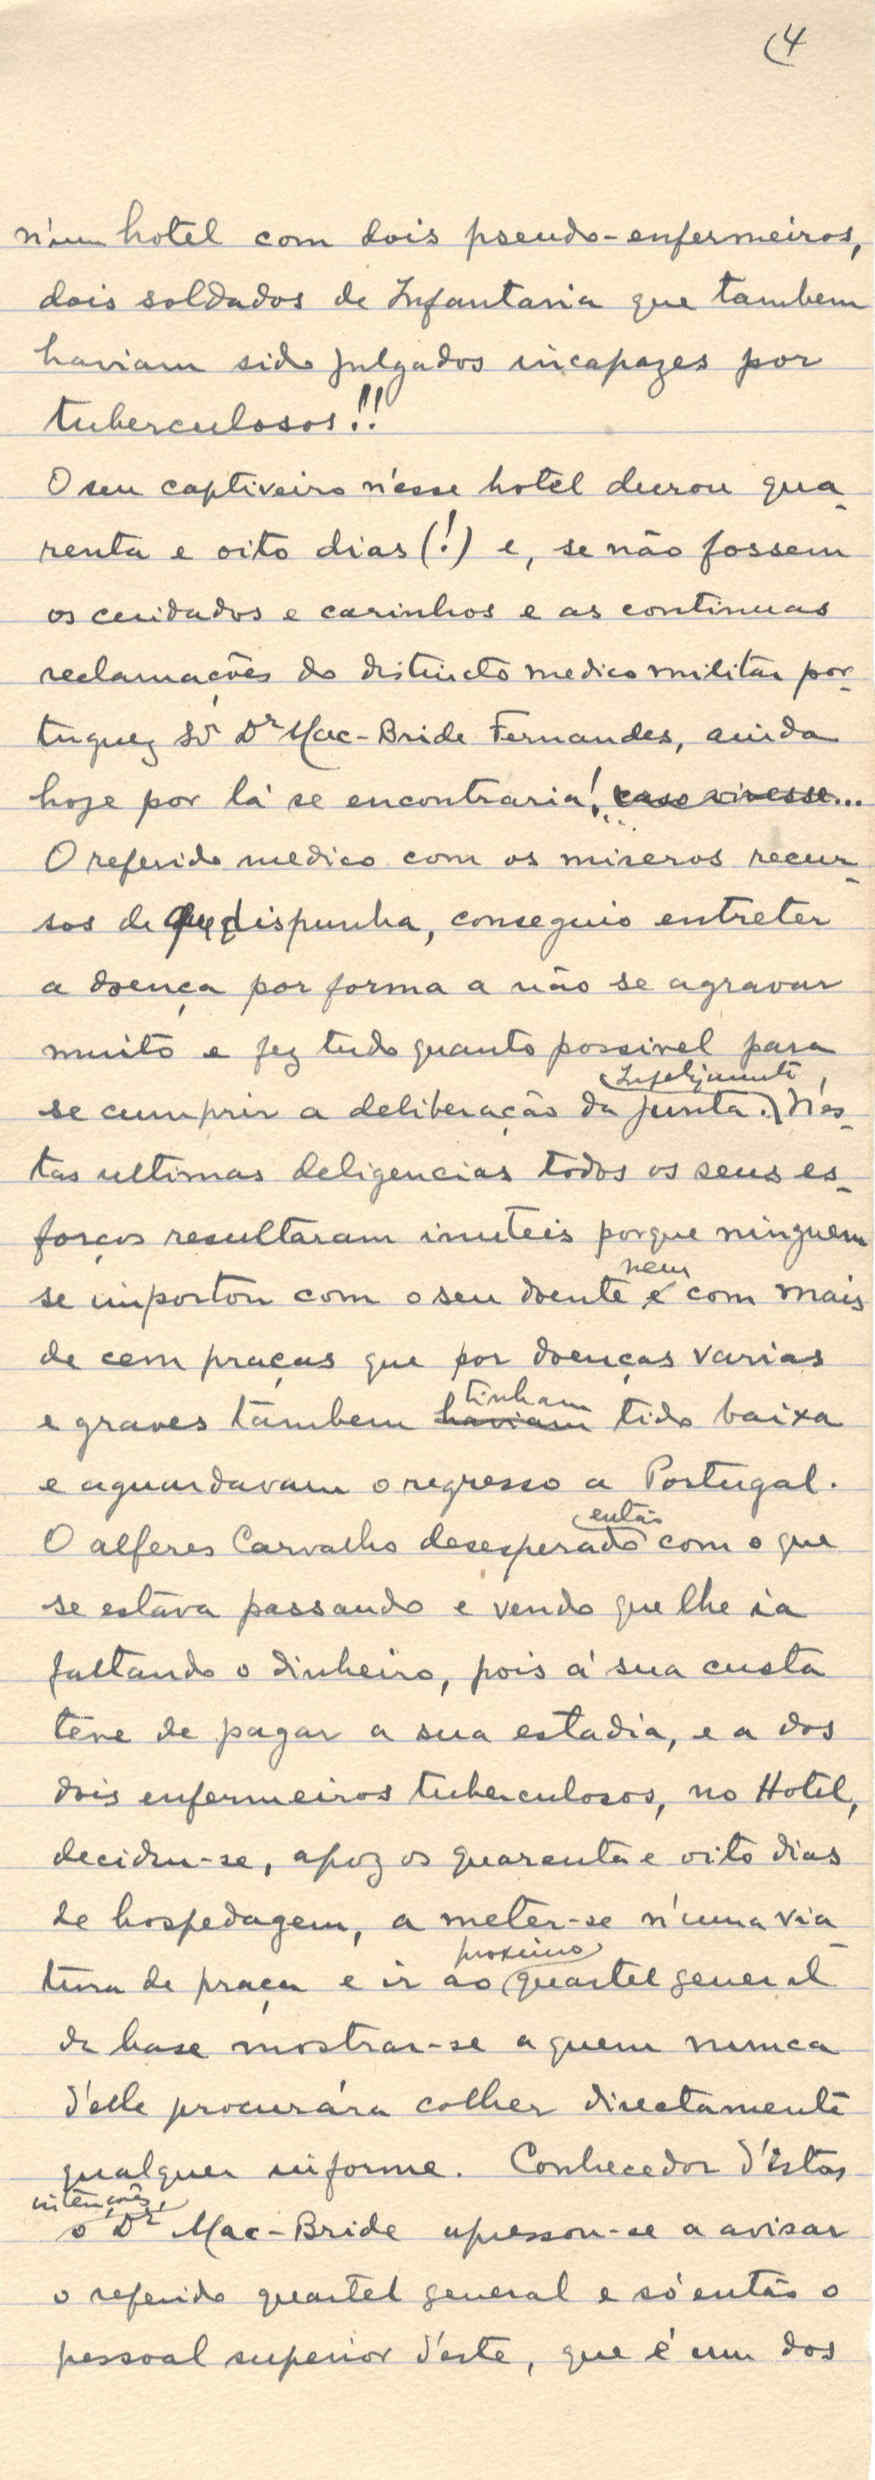 (4
n'um hotel com dois pseudo-enfermeiros,
dois soldados de Infantaria que tambem
haviam sido julgados incapazes por
tuberculosos!!
O seu captiveiro n'esse hotel durou qua-
renta e oito dias (!) e, se não fossem
os cuidados e carinhos e as continuas
reclamações do distincto medico militar por-
tuguez Sr. Dr Mac-Bride Fernandes, ainda
hoje por lá se encontraria! caso vivesse...
O referido medico com os miseros recur-
sos de que dispunha, conseguio entreter
a doença por forma a não se agravar
muito e fez tudo quanto possivel para
Infelizmente,
se cumprir a deliberação da Junta. N'es-
tas ultimas deligencias todos os seus es-
forços resultaram inuteis porque ninguem
nem
se importou com o seu doente e com mais
de cem praças que por doenças varias
tinham
e graves tambem haviam tido baixa
e aguardavam o regresso a Portugal.
então
O alferes Carvalho desesperado com o que
se estava passando e vendo que lhe ia
faltando o dinheiro, pois á sua custa
teve de pagar a sua estadia, e a dos
dois enfermeiros tuberculosos, no Hotel,
decidiu-se, apoz os quarenta e oito dias
de hospedagem, a meter-se n'uma via-
proximo
tura de praça e ir ao quartel general
da base mostrar-se a quem nunca
d'elle procurára colher directamente
qualquer informe. Conhecedor d'estas
intenções,
o Dr Mac-Bride apressou-se a avisar
o referido quartel general e só então o
pessoal superior d'este, que é um dos